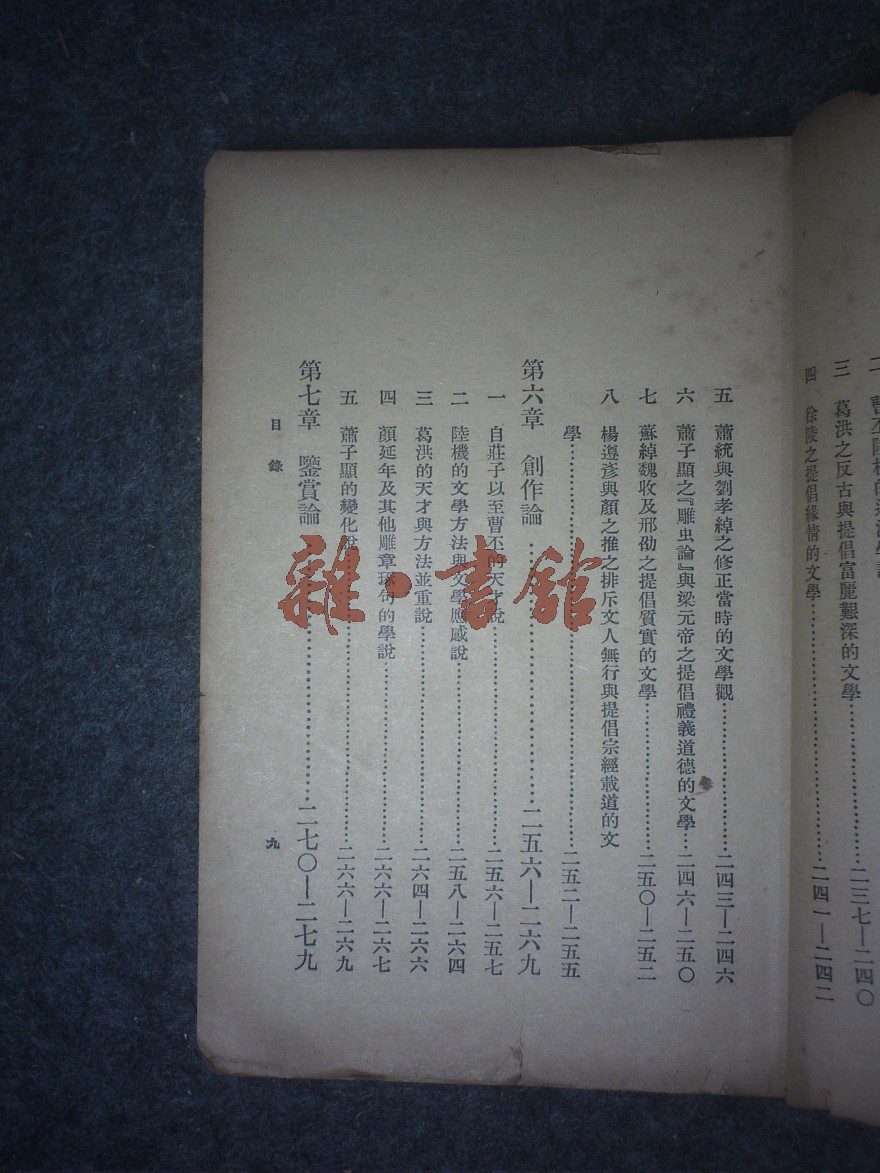 三　葛洪之反古與提倡富麗艱深的文學……二三七—二四〇
四　徐陵之提倡緣情的文學……二四一—二四二
五　蕭統與劉孝綽之修正當時的文學觀……二四三—二四六
六　蕭子顯之『雕虫論』與梁元帝之提倡禮義道德的文學…二四六—二五〇
七　蘇綽魏收及邢劭之提倡質實的文學……二五〇—二五二
八　楊遵彥與顏之推之排斥文人無行與提倡宗經載道的文
學……二五二—二五五
第六章　創作論……二五六—二六九
一　自莊子以至曹丕的天才說……二五六—二五七
二　陸機的文學方法與文學應感說……二五八—二六四
三　葛洪的天才與方法並重說……二六四—二六六
四　顏延年及其他雕章琢句的學說……二六六—二六七
五　蕭子顯的變化說……二六六—二六九
第七章　鑒賞論……二七〇—二七九
目錄
九
雜·書舘